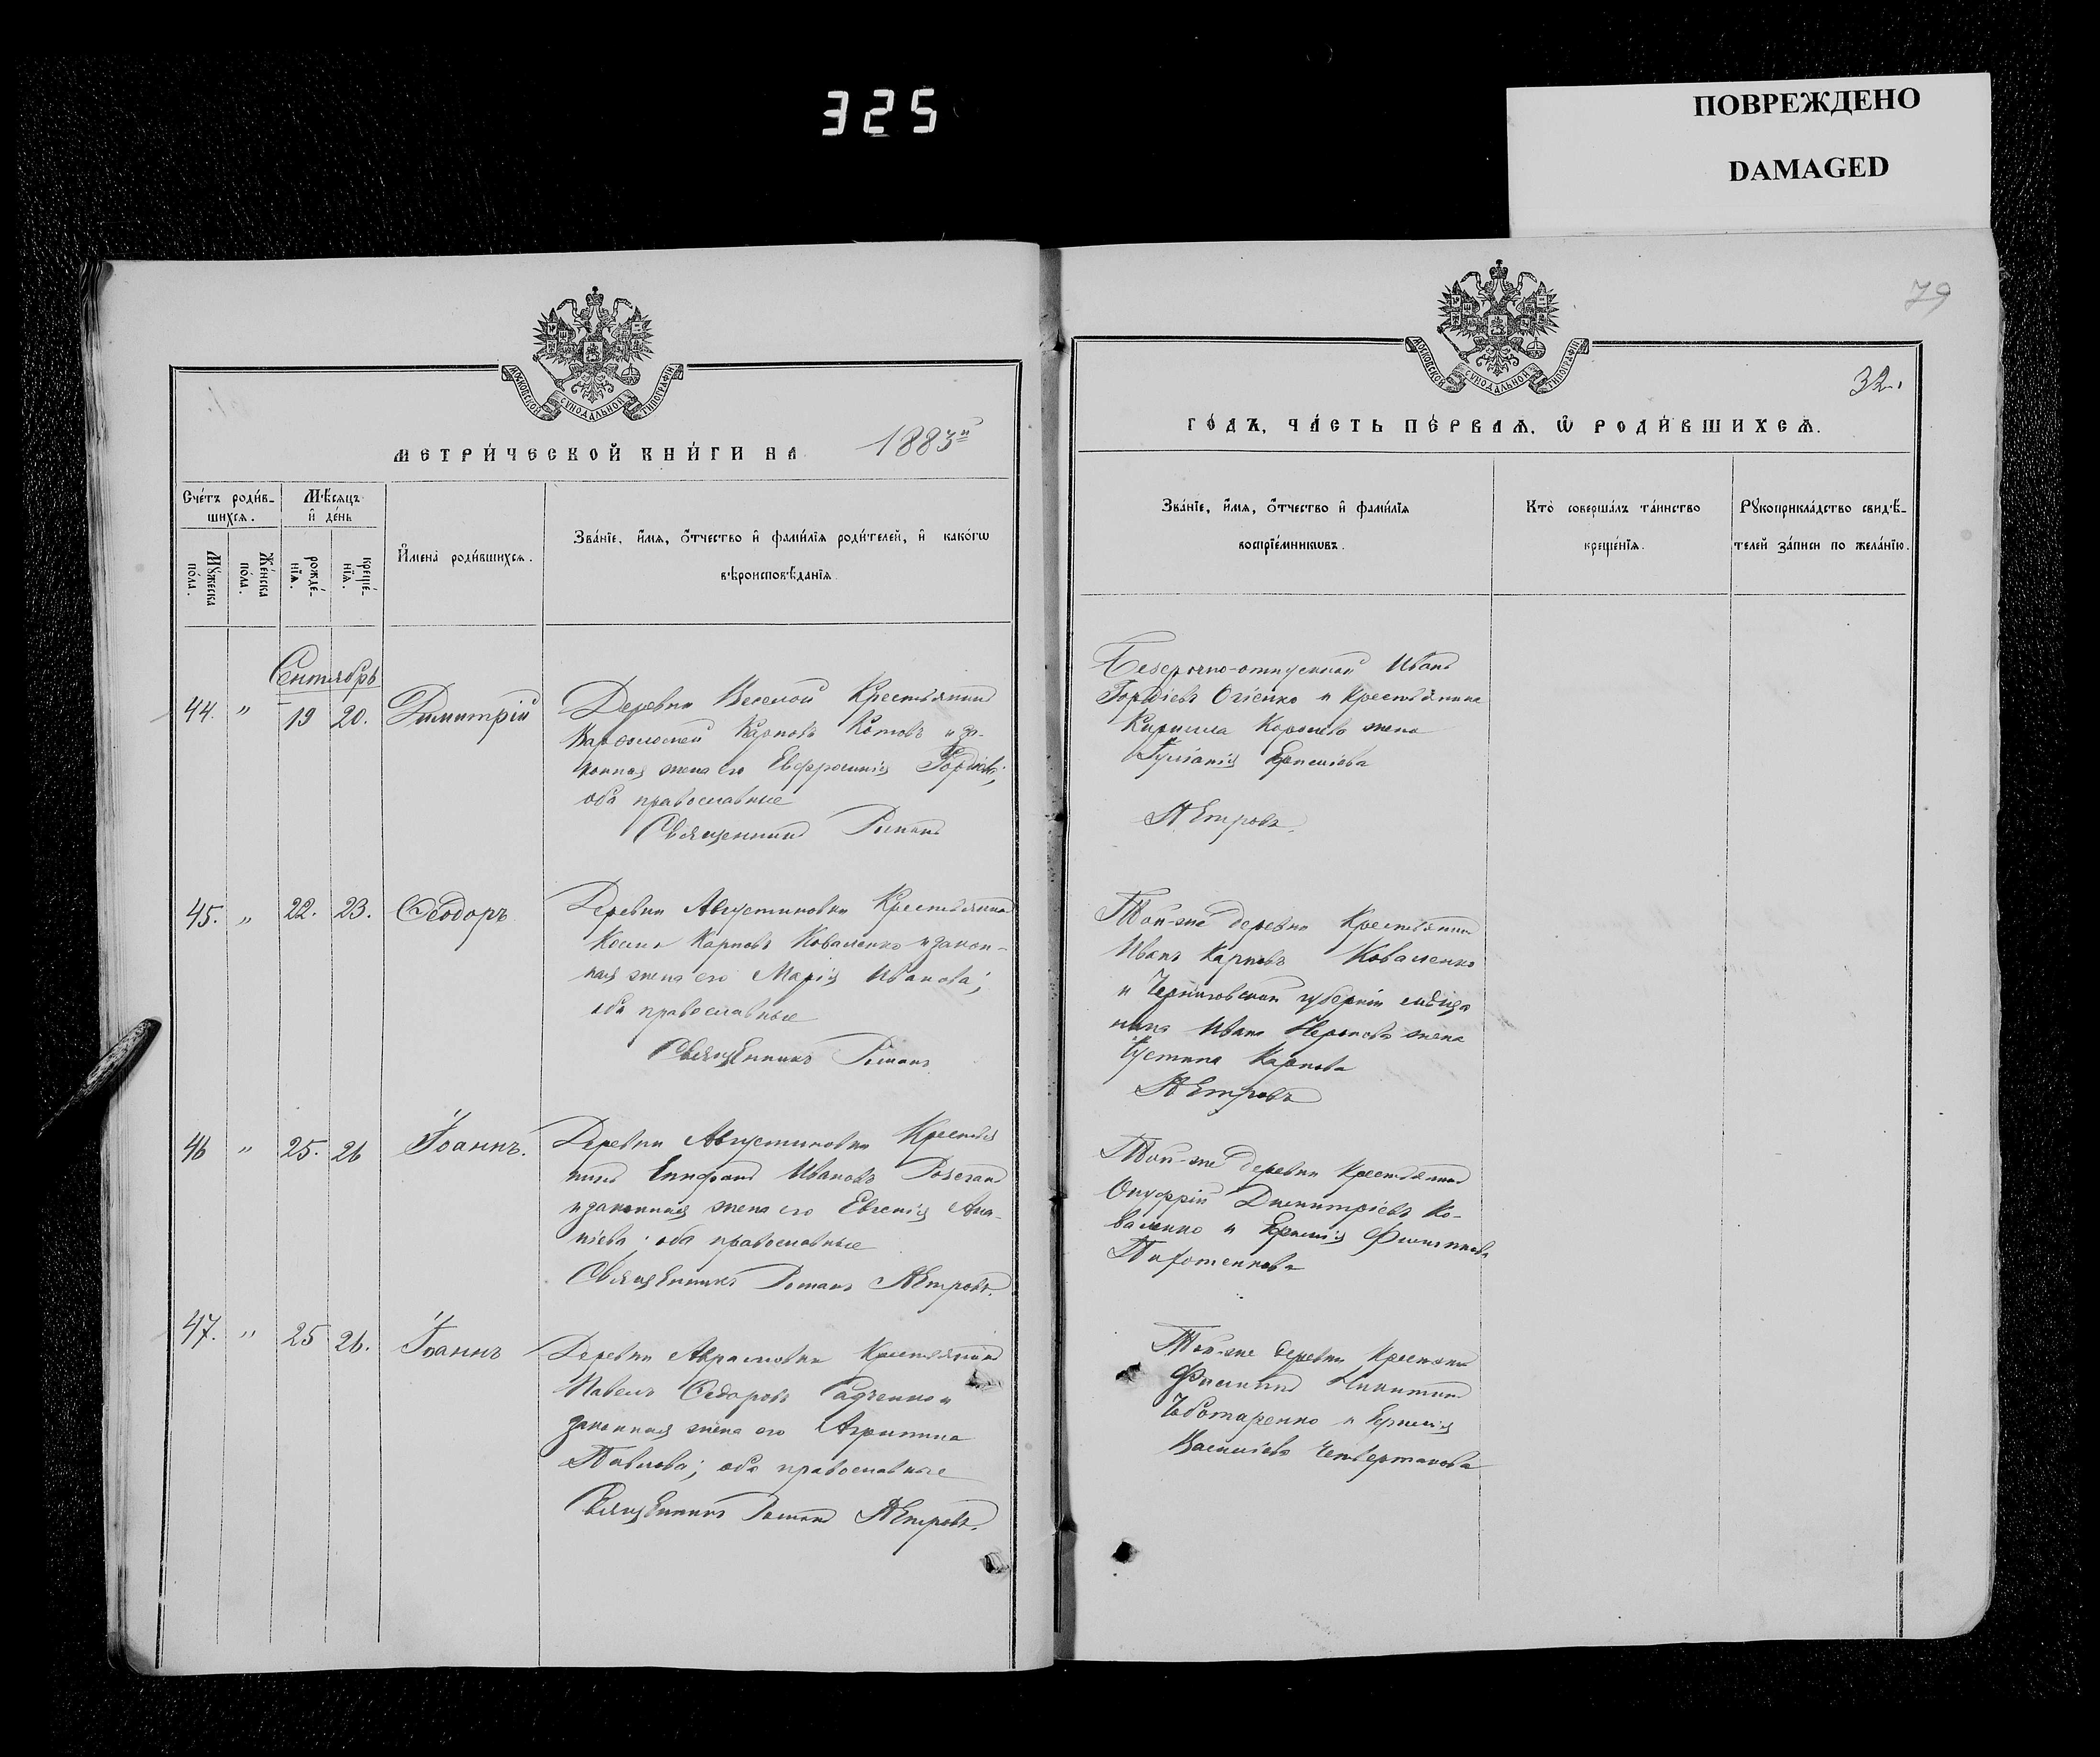 325
ПОВРЕЖДЕНО
DAMAGED
79
МОСКОВСКОЙ СѴНОДАЛЬНОЙ ТИПОГРАФІИ
МЕТРИ́ЧЕСКОЙ КНИ́ГИ НА 1883й
Сче́тъ роди́в-
шихсѧ.
Мѣ́сѧцъ
и҆ де́нь
Мꙋ́жеска
по́ла.
Же́нска
по́ла.
рожде́-
нїѧ.
креще́-
нїѧ.
И҆мена̀ роди́вшихсѧ.
Зва́нїе, и҆́мѧ, ѻ҆́тчество и҆ фами́лїѧ роди́телей, и҆ како́гѡ
вѣроисповѣ́данїѧ.
Сентябрь
44. " 19 20. Димитрій
Деревни Веселой Крестьянинъ
Варфоломей Карповъ Котовъ и за-
конная жена его Евфросинія Гордіева;
оба православные
Священникъ Романъ
45. " 22. 23. Ѳеодоръ
Деревни Августиновки Крестьянинъ
Косма Карповъ Коваленко и закон-
ная жена его Марія Иванова;
оба православные
Священникъ Романъ
46 " 25. 26 Іоаннъ.
Деревни Августиновки Крестья
нинъ Епифанъ Ивановъ
и законная жена его Евгенія Ана-
ніева; оба православные
Священникъ Романъ Петровъ.
47. " 25 26. Іоаннъ
Деревни Аврамовки Крестьянинъ
Павелъ Ѳедоровъ Радченко и
законная жена его Агрипина
Павлова; оба православные
Священникъ Романъ Петровъ.
МОСКОВСКОЙ СѴНОДАЛЬНОЙ ТИПОГРАФІИ
32.
ГО́ДЪ, ЧА́СТЬ ПЕ́РВАѦ, Ѡ҆ РОДИ́ВШИХСѦ.
Зва́нїе, и҆́мѧ, ѻ҆́тчество и҆ фами́лїѧ
воспрїе́мникѡвъ.
Кто̀ соверша́лъ та́инство
креще́нїѧ.
Рꙋкоприкла́дство свидѣ́-
телей за́писи по жела́нїю.
Безсрочно-отпускной Иванъ
Гордіевъ Огіенко и Крестьянина
Кирилла Карпова жена
Іуліанія
Петровъ.
Той-же деревни Крестьянинъ
Иванъ Карповъ Коваленко
и Черниговской губерніи мѣща
нина Ивана жена
Іустина Карпова
Петровъ
Той-же деревни Крестьянинъ
Онуфрій Димитріевъ Ко-
валенко и Филиппова
Той-же деревни Крестьянинъ
Филиппъ Никитинъ
Чоботаренко и
Василіева Четвертакова